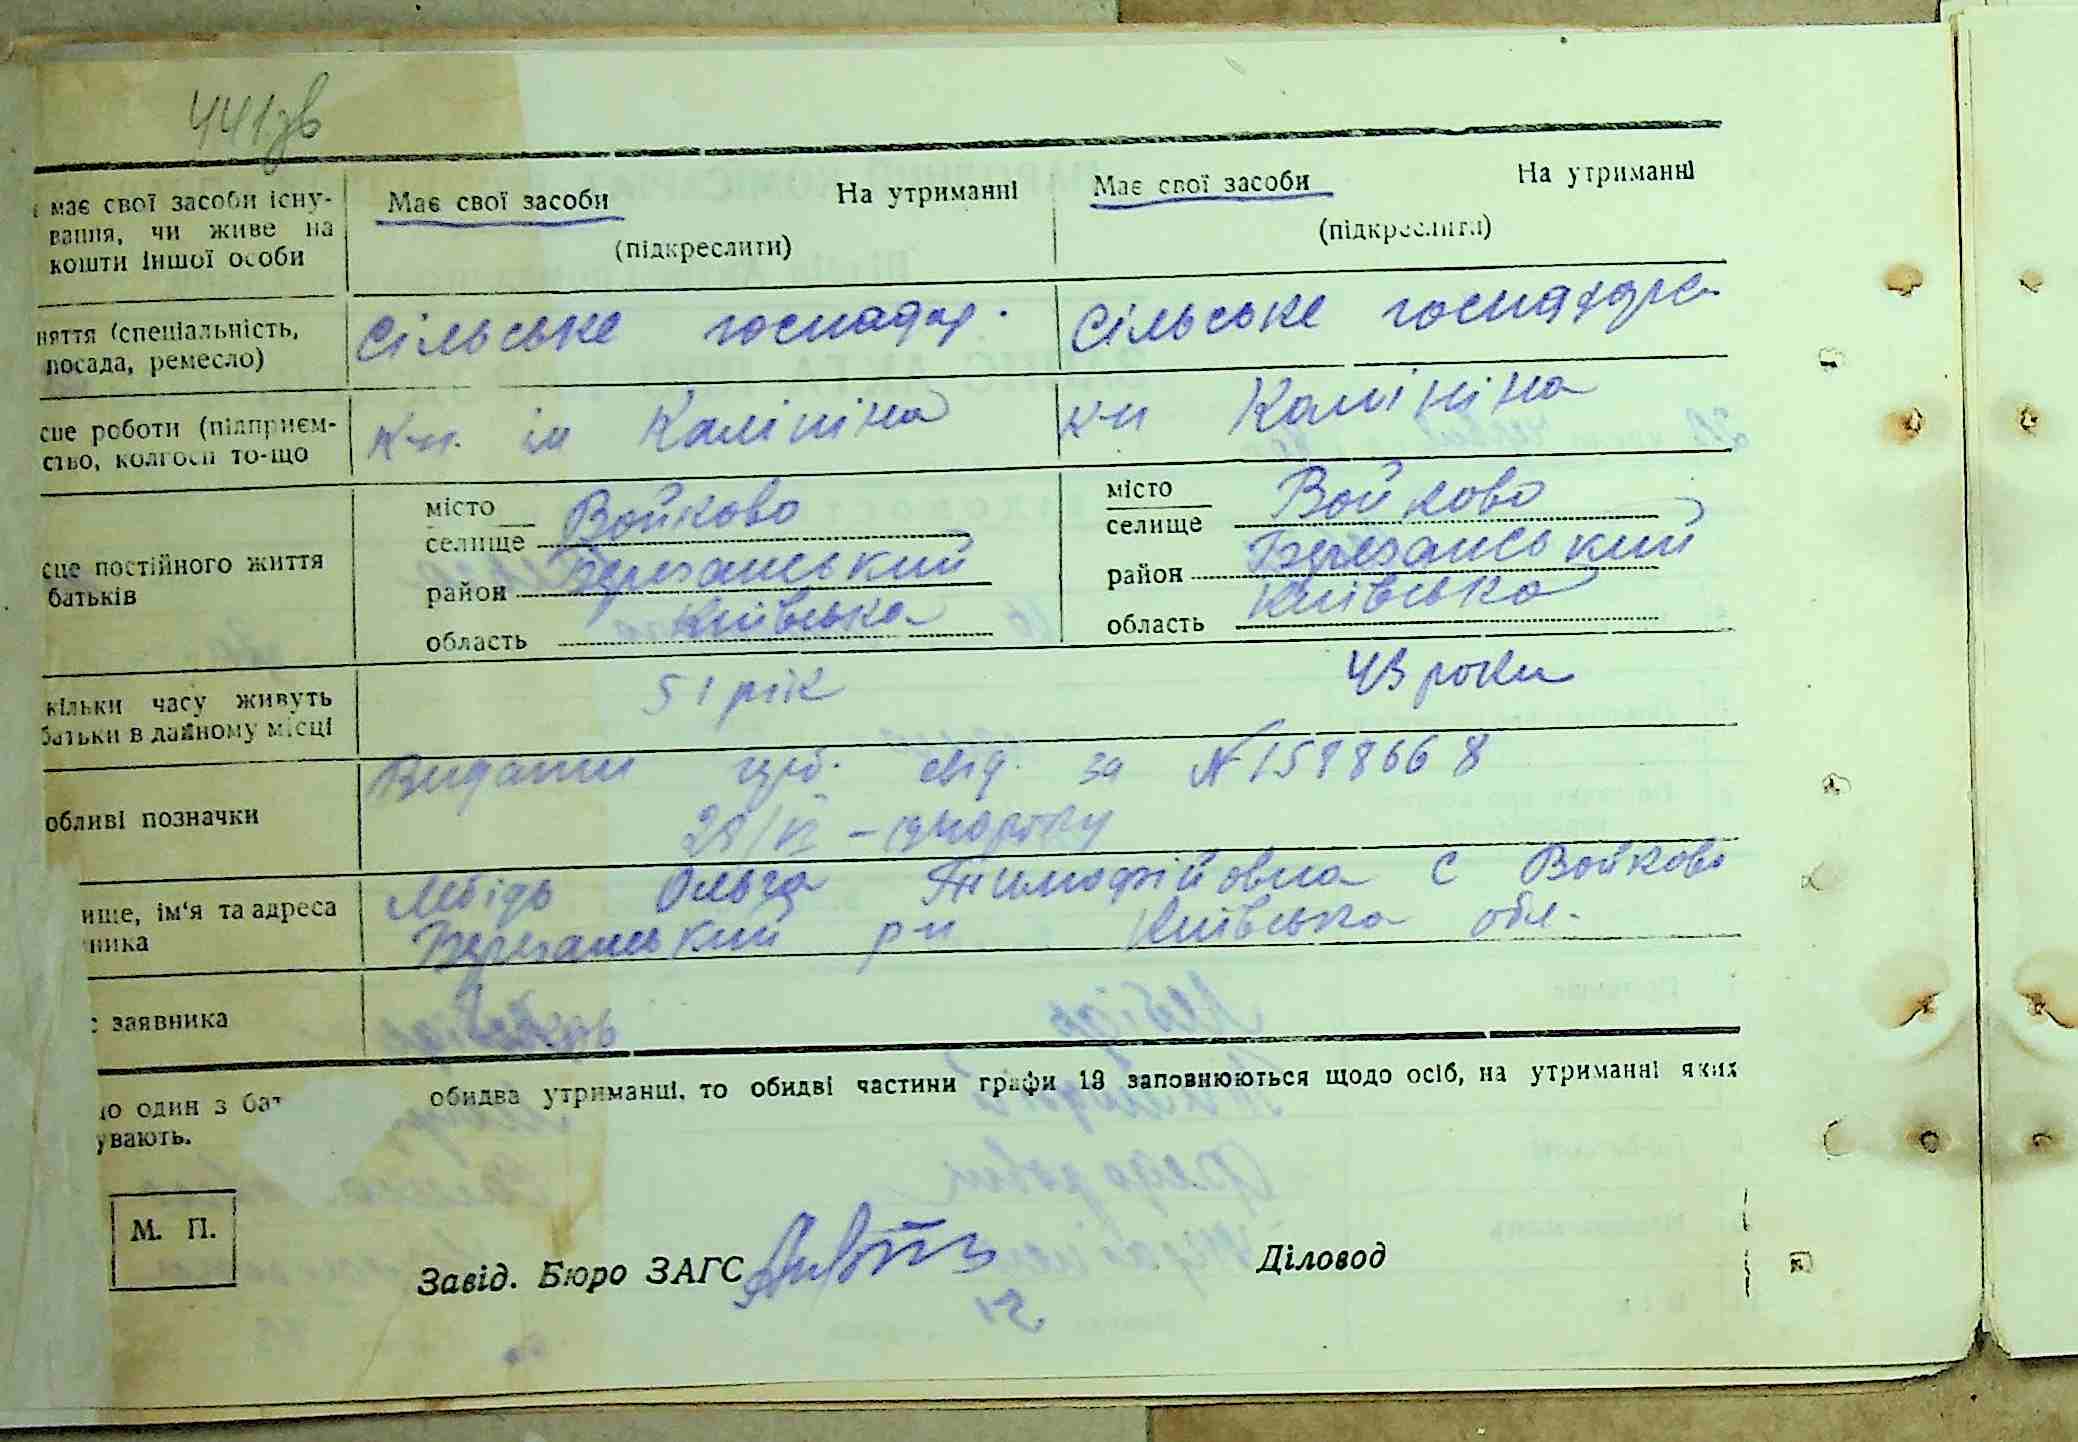 441зв
має свої засоби існу-
вання, чи живе на
кошти іншої особи
Має свої засоби На утриманні
(підкреслити)
Має свої засоби На утриманні
(підкреслити)
няття (спеціальність,
посада, ремесло)
Сільське господар.
Сільське господарс
сце роботи (підприєм-
ство, колгосп то-що
к-п. ім Калініна
к-п Калініна
сце постійного життя
батьків
місто
селище Войково
район Березанський
область Київська
місто
селище Войково
район Березанський
область Київська
кільки часу живуть
батьки в даному місці
51 рік
43 роки
обливі позначки
Видати свід. за №1588668
ище, ім'я та адреса
ника
Лебідь Ольга Тимофійовна с Войково
Березанський р-н Київська обл.
заявника
Лебідь
о один з бат обидва утриманці, то обидві частини графи 13 заповнюються щодо осіб, на утриманні яких
увають.
М. П.
Завід. Бюро ЗАГС
Діловод